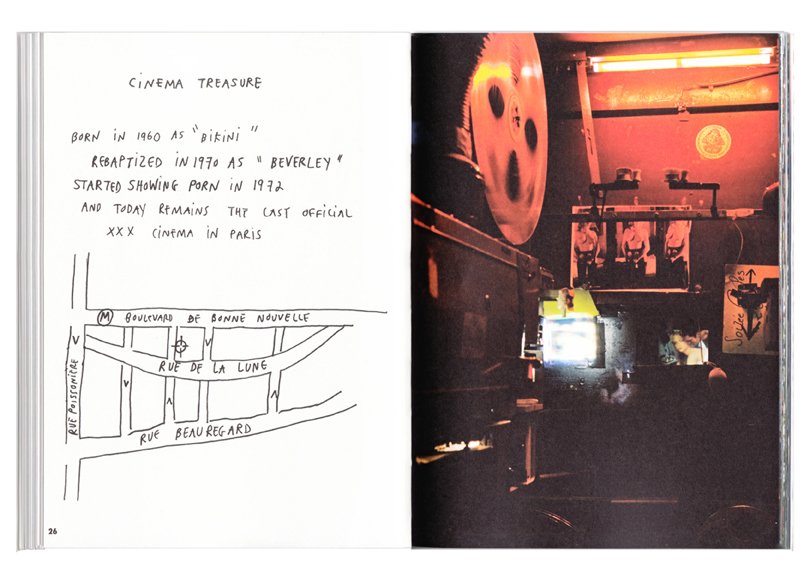 CINEMA TREASURE
BORN IN 1960 AS "BIKINI"
REBAPTIZED IN 1970 AS "BEVERLEY"
STARTED SHOWING PORN IN 1972
AND TODAY REMAINS THE LAST OFFICIAL
XXX CINEMA IN PARIS
M BOULEVARD DE BONNE NOUVELLE
RUE DE LA LUNE
RUE POISSONIÈRE
RUE BEAUREGARD
26